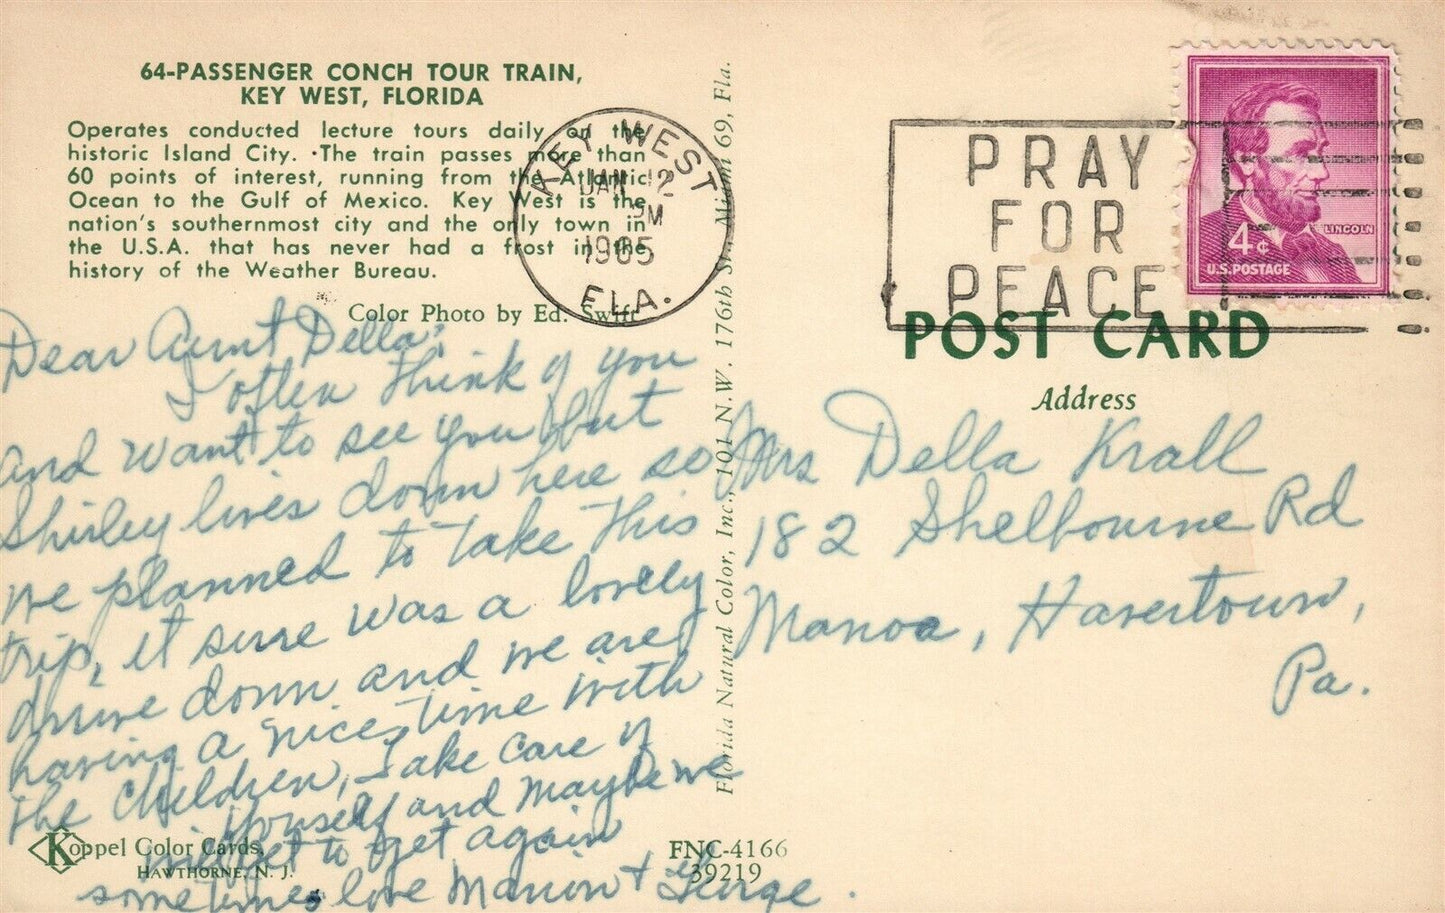 64-PASSENGER CONCH TOUR TRAIN,
KEY WEST, FLORIDA
Operates conducted lecture tours daily on the
historic Island City. The train passes more than
60 points of interest, running from the Atlantic
Ocean to the Gulf of Mexico. Key West is the
nation's southernmost city and the only town in
the U.S.A. that has never had a frost in the
history of the Weather Bureau.
Color Photo by Ed. Swift
KEY WEST
JAN 12
PM
1965
FLA.
Dear Aunt Della;
I often think of you
and want to see you but
Shirley lives down here so
we planned to take this
trip, it sure was a lovely
drive down and we are
having a nice time with
the children, Take care of
yourself and maybe we
will get to get again
sometimes love Marion + George.
Koppel Color Cards,
HAWTHORNE, N. J.
Florida Natural Color, Inc., 101 N.W. 176th St., Miami 69, Fla.
FNC-4166
39219
PRAY
FOR
PEACE
4¢
LINCOLN
U.S. POSTAGE
POST CARD
Address
Mrs Della Krall
182 Shelbourne Rd
Manoa, Havertown,
Pa.